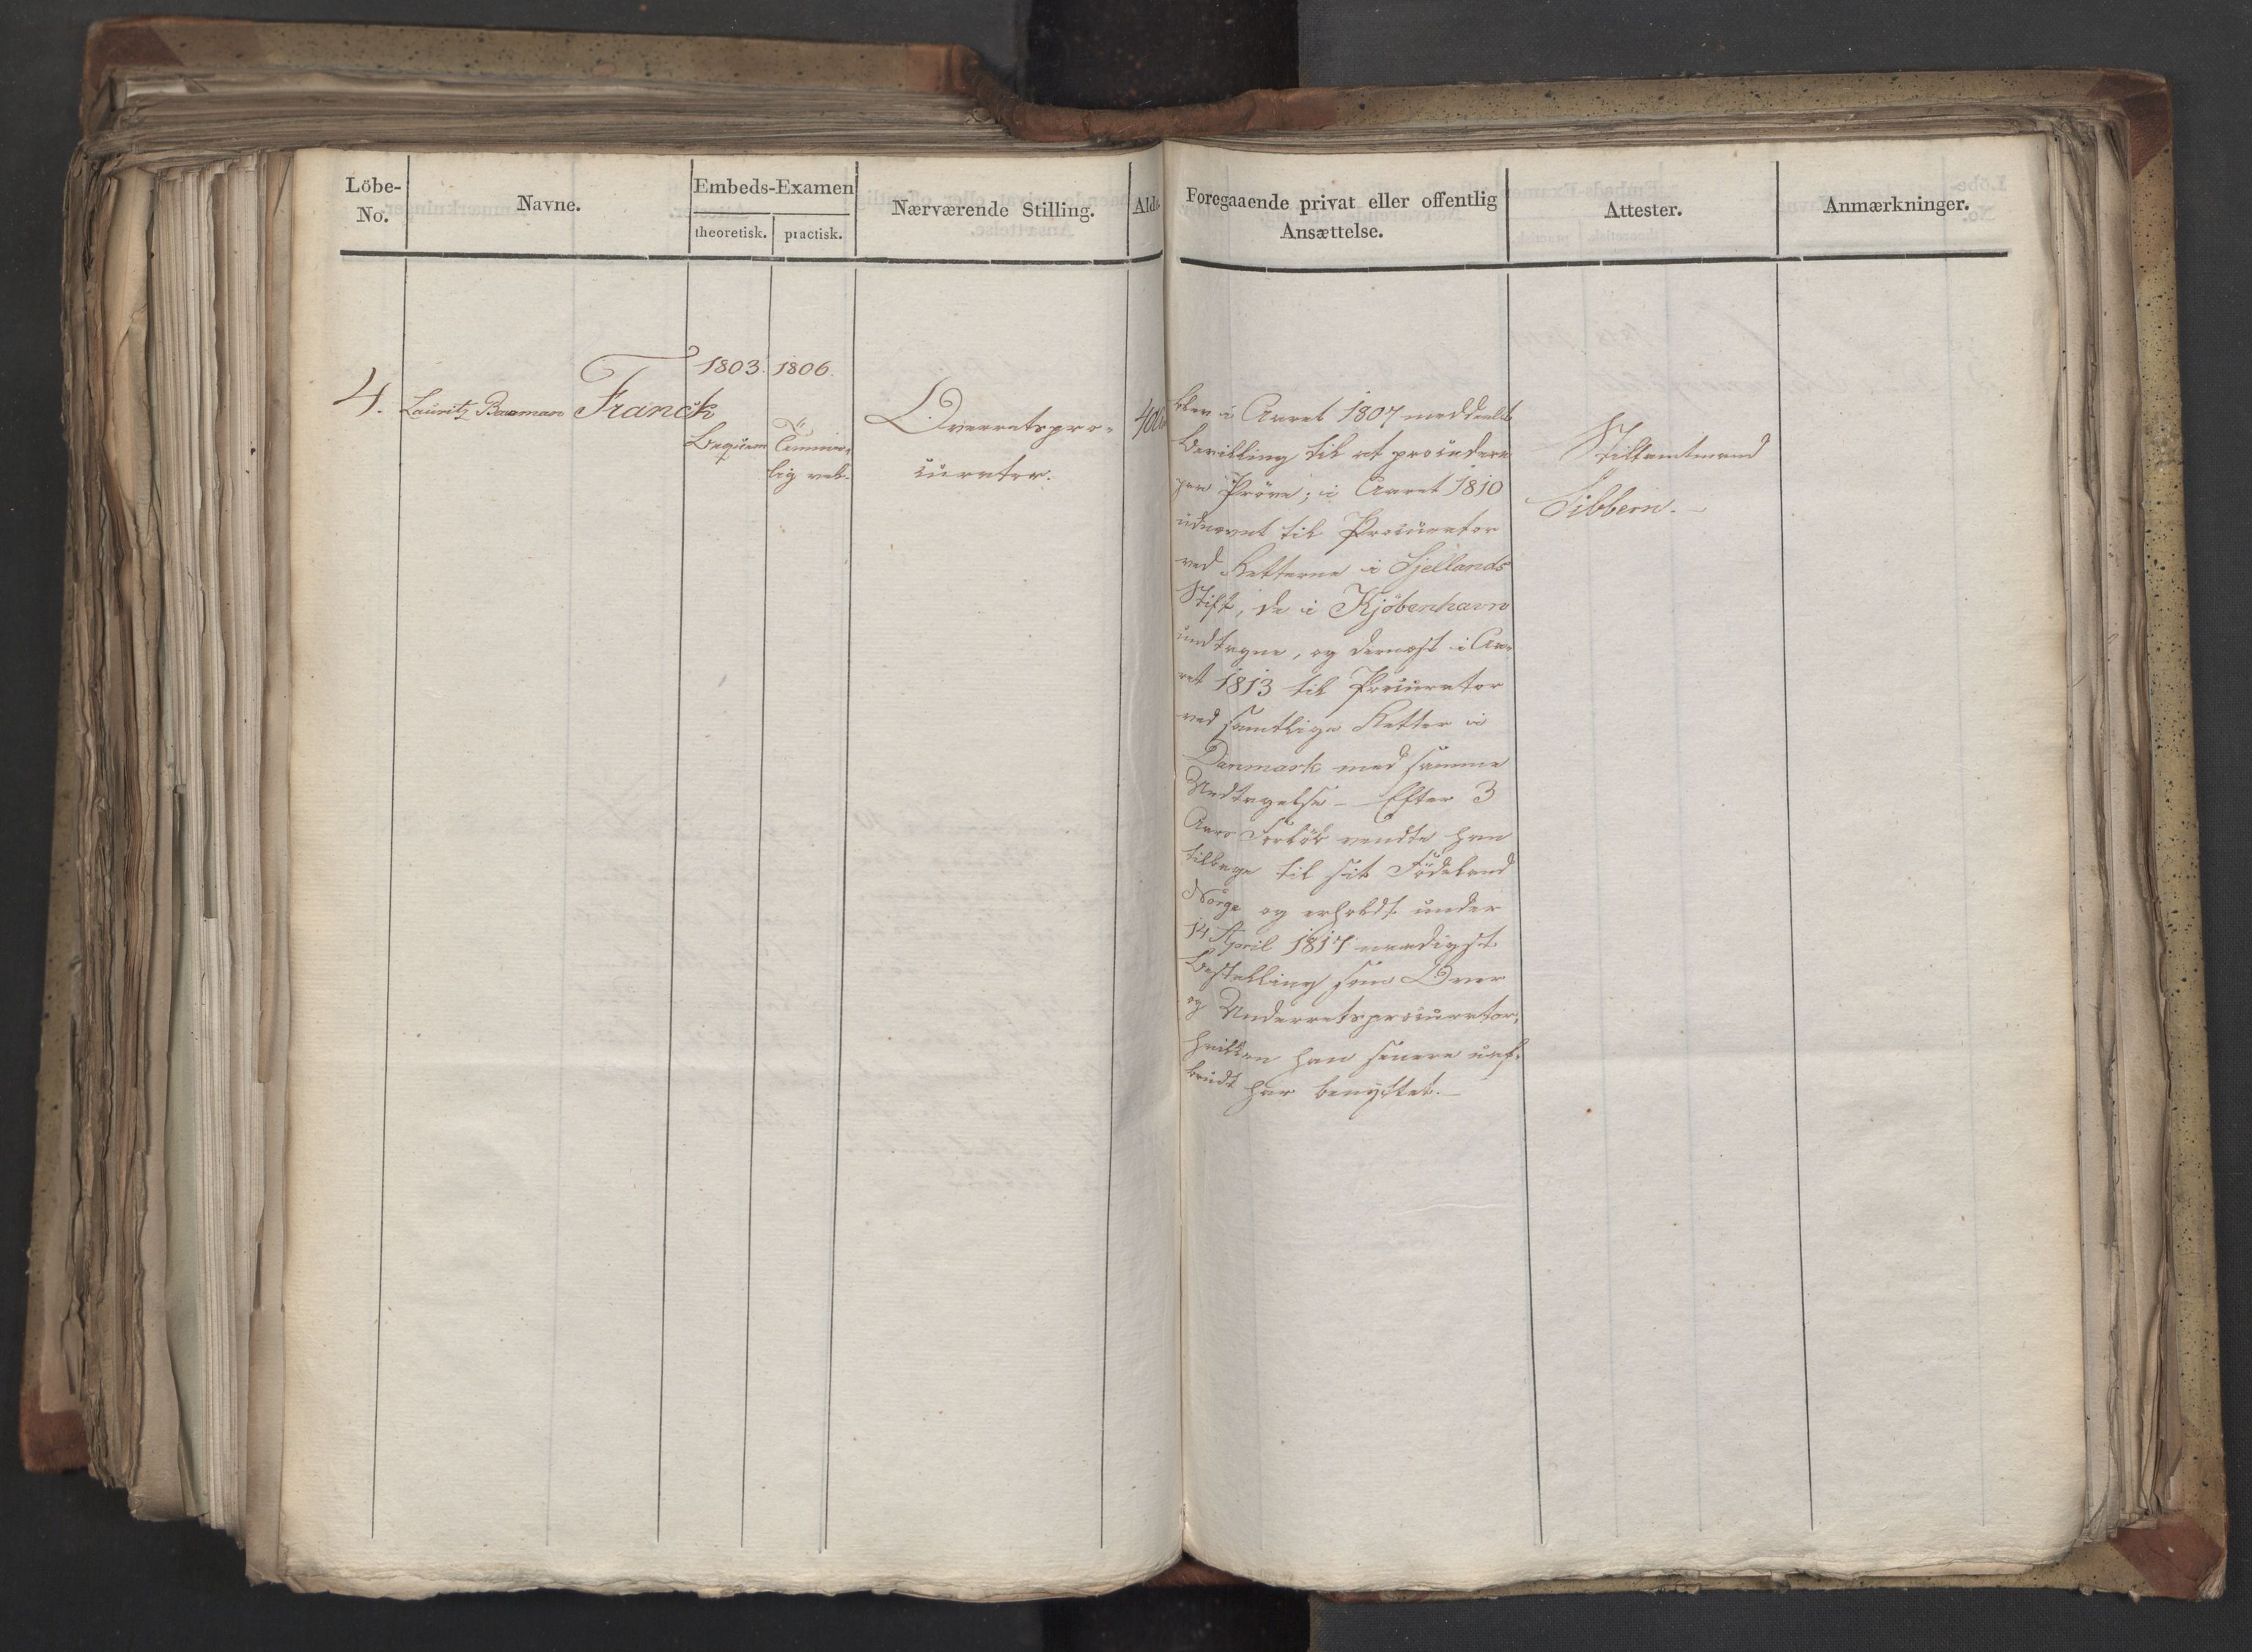 Löbe-
No.
Navne.
Embeds-Examen
theoretisk.
practisk.
Nærværende Stilling.
Ald.
Foregaaende privat eller offentlig
Ansættelse.
Attester.
Anmærkninger.
4.
Lauritz Franck
1803.
Beqvem
1806.
Temme-
lig vel.
Overretspro-
curator.
40
blev i Aaret 1807 meddeelt
Bevilling til at procedere
paa Pröve; i Aaret 1810
udnævnt til Procurator
ved Retterne i Sjellands
Stift, de i Kjöbenhavn
undtagne, og dernæst i Aa-
ret 1813 til Procurator
ved samtlige Retter i
Danmark med samme
Undtagelse - Efter 3
Aars Forlöb vendte han
tilbage til sit Födeland
Norge og erholdt under
14 April 1817 naadigst
Bestalling som Over
og Underretsprocurator,
hvilken han senere uaf-
brudt har benyttet. -
Stiftamtmand
Sibbern. -